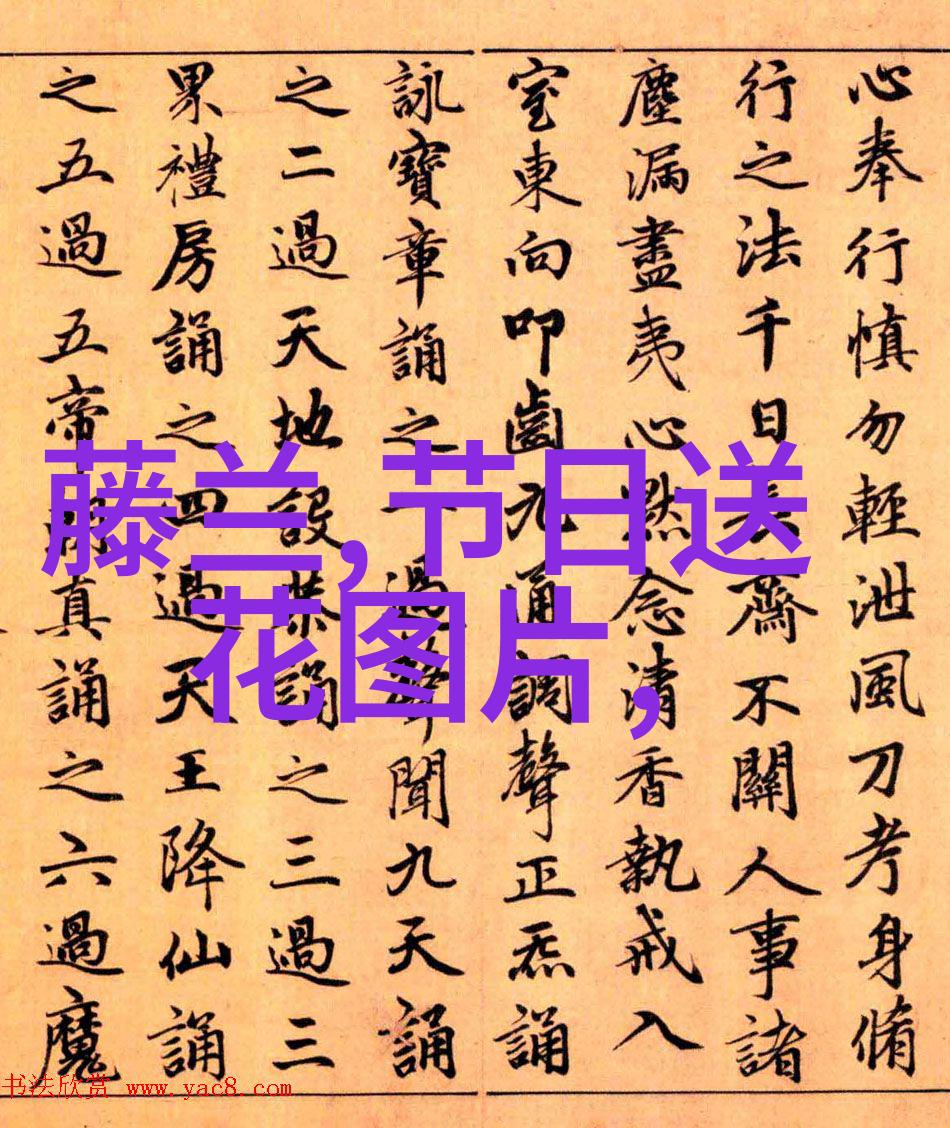 心奉行慎勿輕泄風刀考身脩
行之法千日長齋不關人事諸
塵漏盡夷心默念清香執戒入
室東向叩齒九通調聲正炁誦
詠寶章誦之一過聲聞九天誦
之二過天地設恭誦之三過三
界禮房誦之四過天王降仙誦
之五過五帝朝真誦之六過魔
藤兰,节日送
花图片,
书法欣赏 www.yac8.com